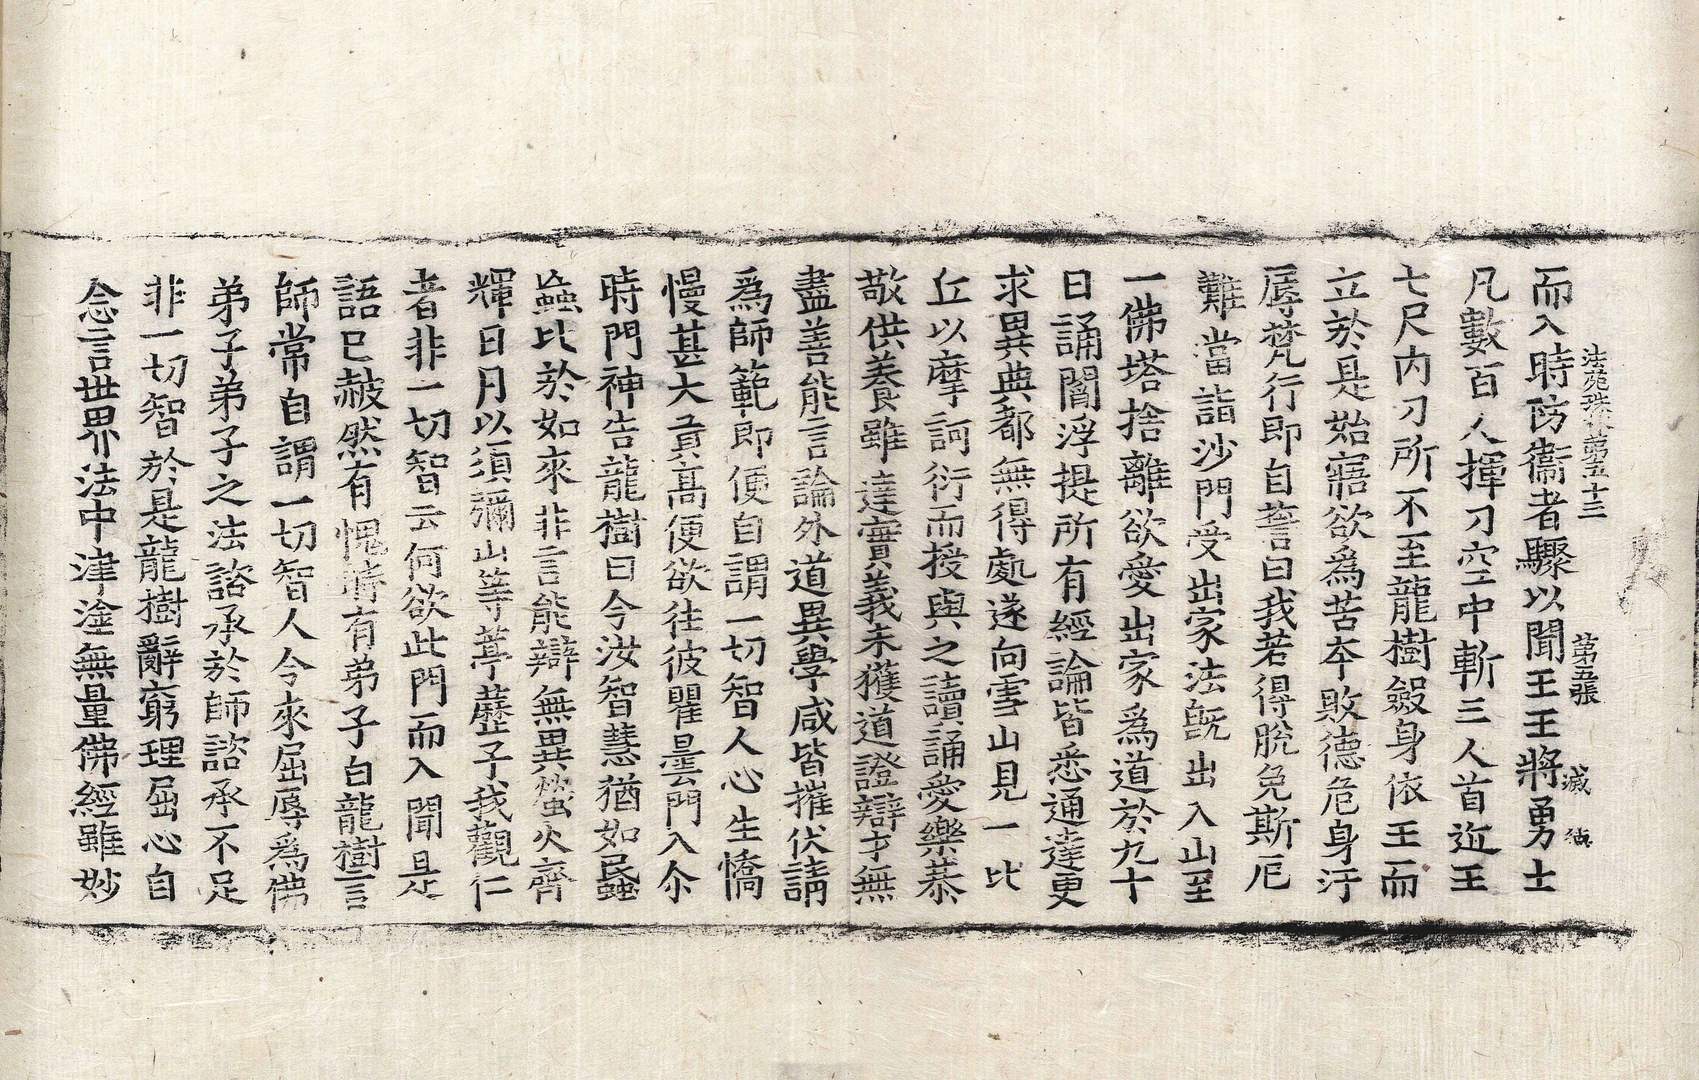 法苑珠林第五十三　第五張
而入時防衞者驟以聞王王將勇士
凡數百人揮刀空中斬三人首近王
七尺內刀所不至龍樹斂身依王而
立於是始寤欲爲苦本敗德危身汙
辱梵行即自誓曰我若得脫免斯厄
難當詣沙門受出家法旣出入山至
一佛塔捨離欲愛出家爲道於九十
日誦閻浮提所有經論皆悉通達更
求異典都無得處遂向雪山見一比
丘以摩訶衍而授與之讀誦愛樂恭
敬供養雖達實義未獲道證辯才無
盡善能言論外道異學咸皆摧伏請
爲師範即便自謂一切智人心生憍
慢甚大貢高便欲往彼瞿曇門入尒
時門神告龍樹曰今汝智慧猶如蚊
蝱比於如來非言能辯無異螢火齊
輝日月以須彌山等葶藶子我觀仁
者非一切智云何欲此門而入聞是
語已赧然有愧時有弟子白龍樹言
師常自謂一切智人今來屈辱爲佛
弟子弟子之法諮承於師諮承不足
非一切智於是龍樹辭窮理屈心自
念言世界法中津塗無量佛經雖妙